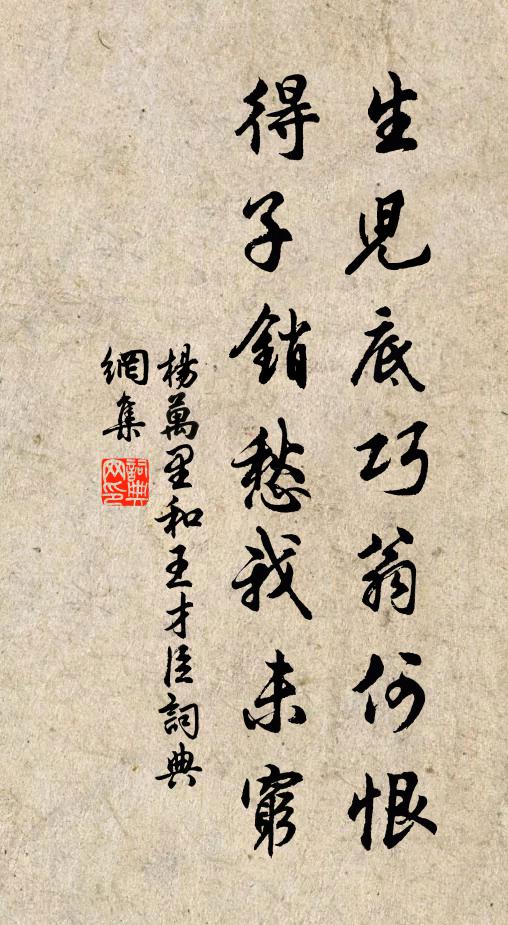 生兒底巧翁何恨
得子銷愁我未窮
楊萬里和王才臣詞典
網集
詞典
网印